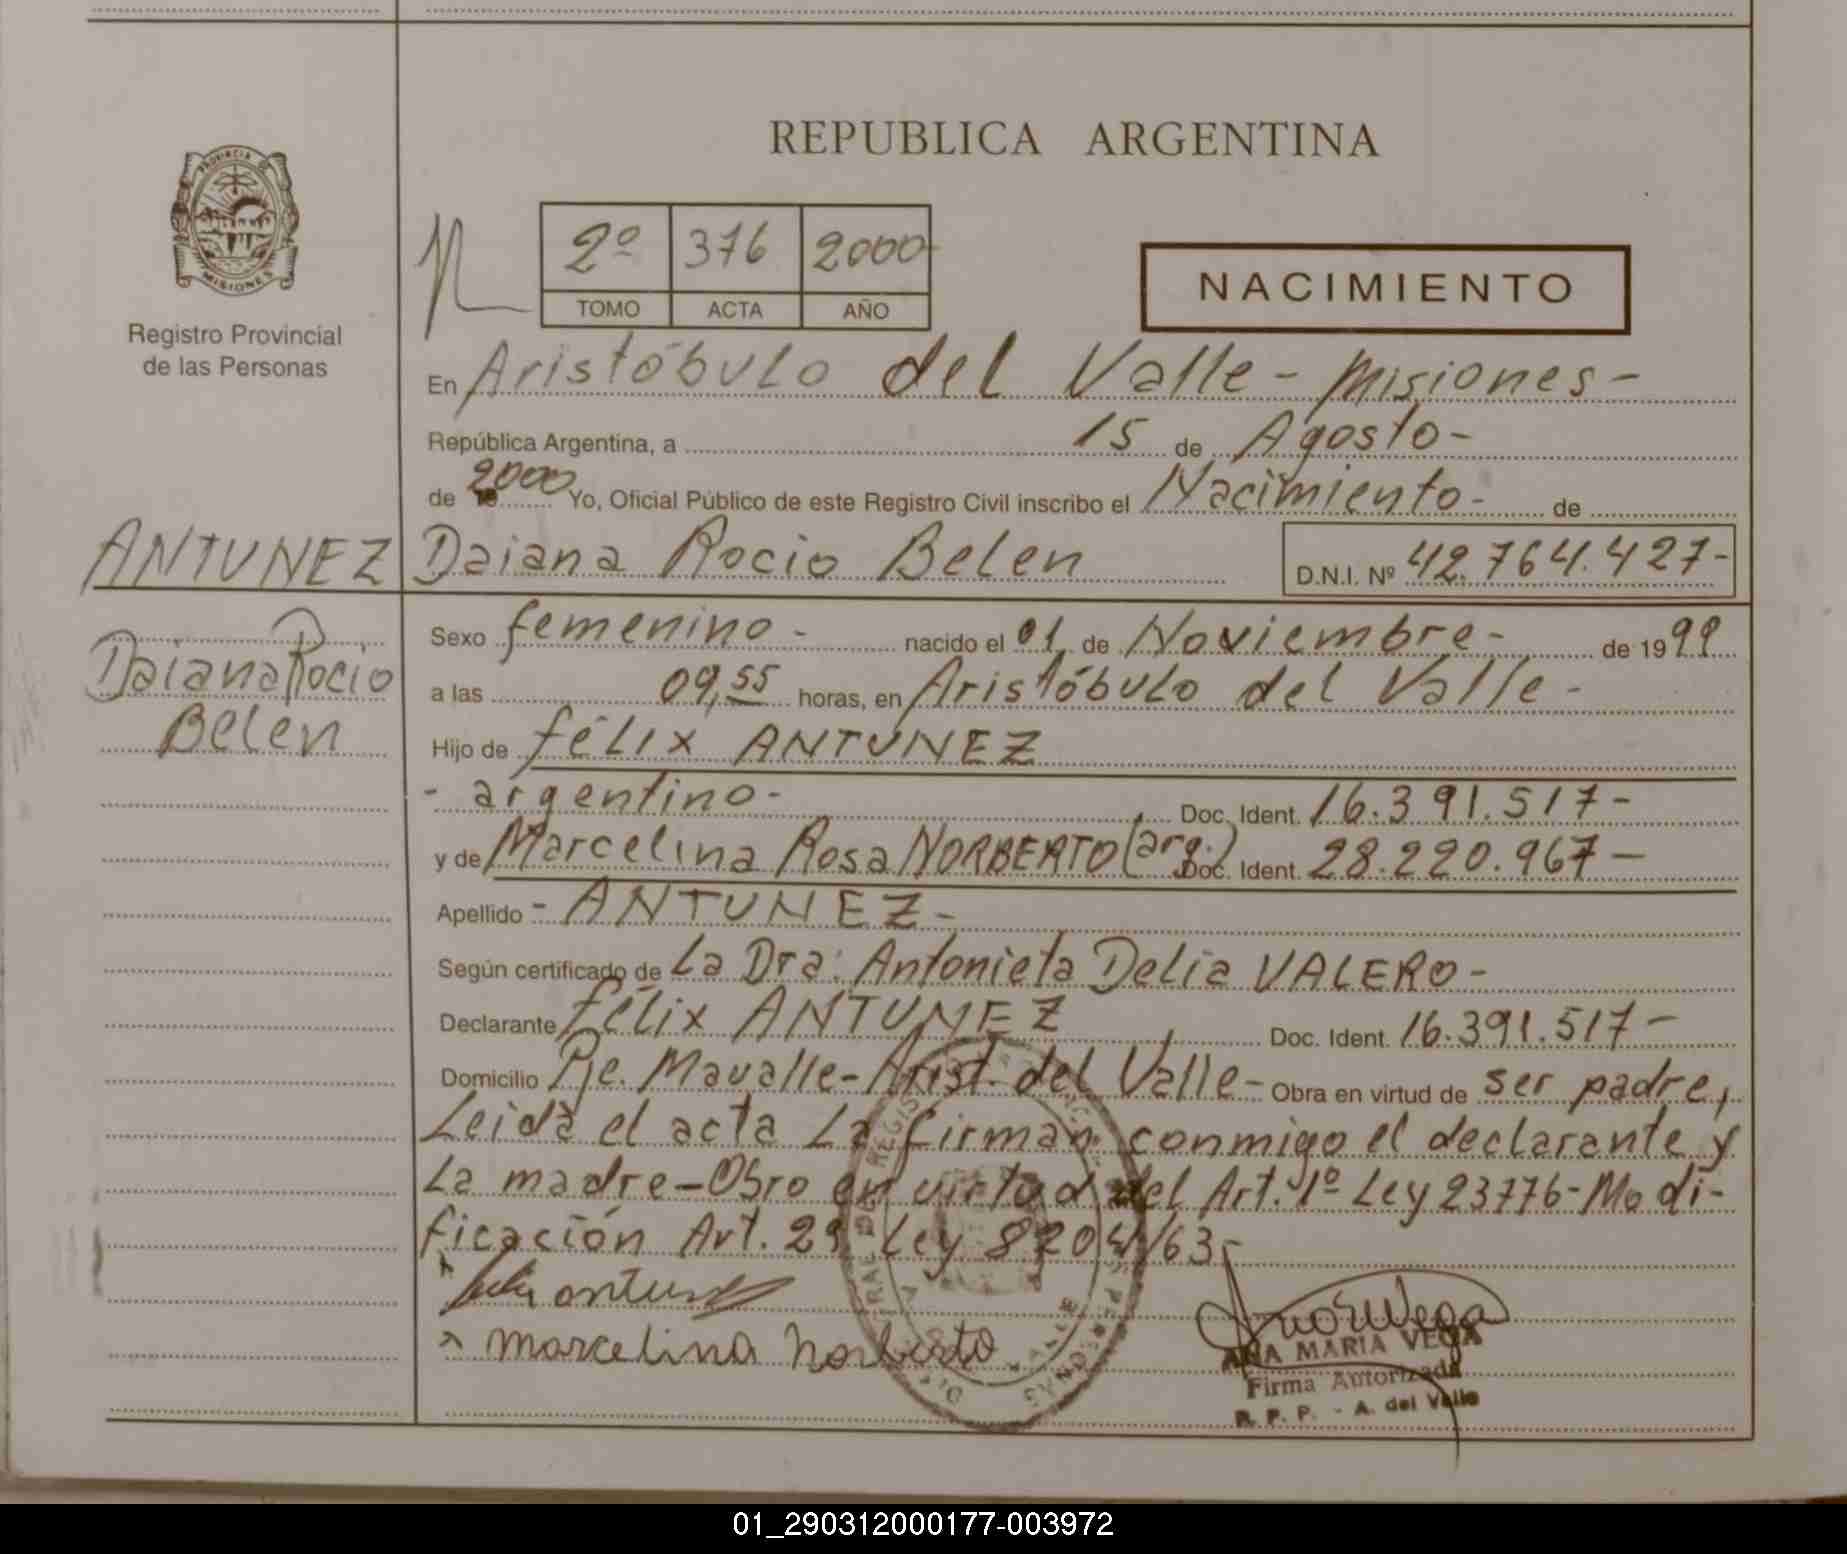 REPUBLICA ARGENTINA
PROVINCIA DE MISIONES
Registro Provincial
de las Personas
2º 376 2000-
TOMO ACTA AÑO
NACIMIENTO
En Aristóbulo del Valle - Misiones -
República Argentina, a 15 de Agosto -
de 2000 Yo, Oficial Público de este Registro Civil inscribo el Nacimiento - de
ANTUNEZ Daiana Rocio Belen D.N.I. Nº 42.764.427-
Daiana Rocio
Belen
Sexo femenino - nacido el 01 de Noviembre - de 1999
a las 09,55 horas, en Aristóbulo del Valle -
Hijo de félix ANTUNEZ
- argentino - Doc. Ident. 16.391.517-
y de Marcelina Rosa NORBERTO (arg.) Doc. Ident. 28.220.967-
Apellido - ANTUNEZ -
Según certificado de La Dra. Antonieta Delia VALERO -
Declarante félix ANTUNEZ Doc. Ident. 16.391.517-
Domicilio Pje. Mavalle - Arist. del Valle - Obra en virtud de ser padre,
Leida el acta La firman conmigo el declarante y
La madre - Obro en virtud del Art. 1º Ley 23776 - Modi-
ficación Art. 29 Ley 8204/63 -
marcelina Norberto
ANA MARIA VEGA
Firma Autorizada
R. P. P. - A. del Valle
01_290312000177-003972